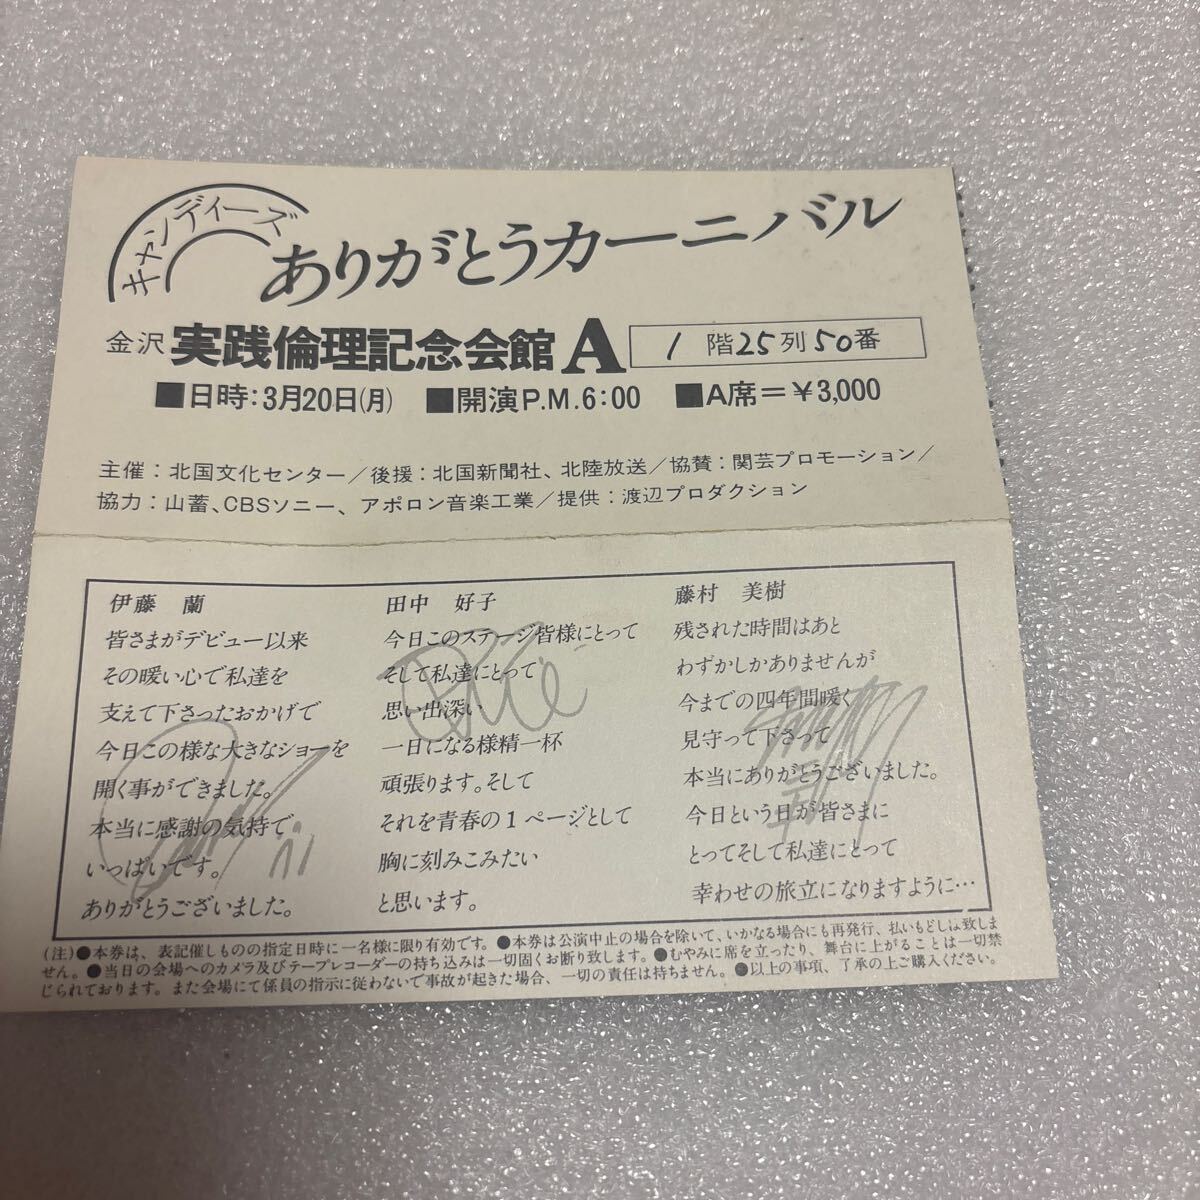 キャンディーズ
ありがとうカーニバル
金沢 実践倫理記念会館 A 1階25列50番
■日時:3月20日(月) ■開演P.M.6:00 ■A席=¥3,000
主催:北国文化センター/後援:北国新聞社、北陸放送/協賛:関芸プロモーション/
協力:山蓄、CBSソニー、アポロン音楽工業/提供:渡辺プロダクション
伊藤 蘭
皆さまがデビュー以来
その暖い心で私達を
支えて下さったおかげで
今日この様な大きなショーを
開く事ができました。
本当に感謝の気持で
いっぱいです。
ありがとうございました。
田中 好子
今日このステージ皆様にとって
そして私達にとって
思い出深い
一日になる様精一杯
頑張ります。そして
それを青春の1ページとして
胸に刻みこみたい
と思います。
藤村 美樹
残された時間はあと
わずかしかありませんが
今までの四年間暖く
見守って下さって
本当にありがとうございました。
今日という日が皆さまに
とってそして私達にとって
幸わせの旅立になりますように…
(注)●本券は、表記催しものの指定日時に一名様に限り有効です。●本券は公演中止の場合を除いて、いかなる場合にも再発行、払いもどしは致しま
せん。●当日の会場へのカメラ及びテープレコーダーの持ち込みは一切固くお断り致します。●むやみに席を立ったり、舞台に上がることは一切禁
じられております。また会場にて係員の指示に従わないで事故が起きた場合、一切の責任は持ちません。●以上の事項、了承の上ご購入ください。